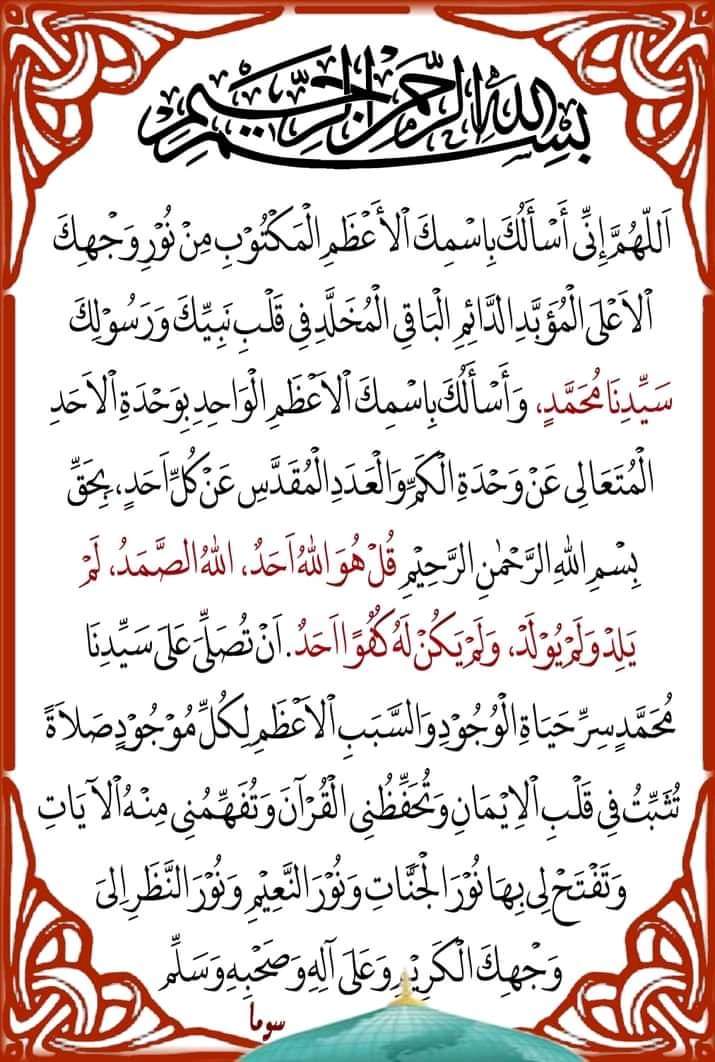 بِسْمِ اللهِ الرَّحْمٰنِ الرَّحِيْمِ
اَللّٰهُمَّ إِنِّى أَسْأَلُكَ بِاسْمِكَ الْأَعْظَمِ الْمَكْتُوْبِ مِنْ نُوْرِ وَجْهِكَ
الْاَعْلَى الْمُؤَبَّدِ الدَّائِمِ الْبَاقِى الْمُخَلَّدِ فِى قَلْبِ نَبِيِّكَ وَرَسُوْلِكَ
سَيِّدِنَا مُحَمَّدٍ، وَأَسْأَلُكَ بِاسْمِكَ الْاَعْظَمِ الْوَاحِدِ بِوَحْدَةِ الْاَحَدِ
الْمُتَعَالِى عَنْ وَحْدَةِ الْكَمِّ وَالْعَدَدِ الْمُقَدَّسِ عَنْ كُلِّ اَحَدٍ، بِحَقِّ
بِسْمِ اللهِ الرَّحْمٰنِ الرَّحِيْمِ قُلْ هُوَ اللهُ اَحَدٌ، اَللهُ الصَّمَدُ، لَمْ
يَلِدْ وَلَمْ يُوْلَدْ، وَلَمْ يَكُنْ لَهُ كُفُوًا اَحَدٌ. اَنْ تُصَلِّىَ عَلَى سَيِّدِنَا
مُحَمَّدٍ سِرِّ حَيَاةِ الْوُجُوْدِ وَالسَّبَبِ الْاَعْظَمِ لِكُلِّ مَوْجُوْدٍ صَلَاةً
تُثَبِّتُ فِى قَلْبِى الْاِيْمَانَ وَتُحَفِّظُنِى الْقُرْآنَ وَتُفَهِّمُنِى مِنْهُ الْآيَاتِ
وَتَفْتَحْ لِى بِهَا نُوْرَ الْجَنَّاتِ وَنُوْرَ النَّعِيْمِ وَنُوْرَ النَّظَرِ اِلىَ
وَجْهِكَ الْكَرِيْمِ وَعَلَى آلِهِ وَصَحْبِهِ وَسَلِّمْ
سوما